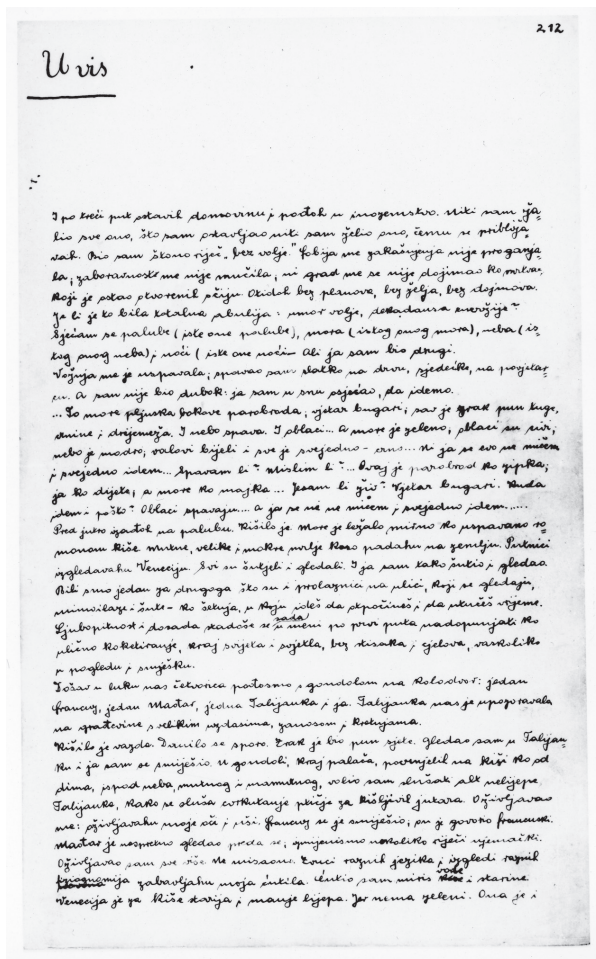 212
U vis
I po treći put ostavih domovinu i pođoh u inozemstvo. Niti sam ža-
lio sve ono, što sam ostavljao niti sam želio ono, čemu se približa-
vah. Bio sam što no riječ „bez volje." Fobija me zakašnjenja nije proganja-
la; zaboravnost me nije mučila; ni grad me se nije dojimao ko mrtvac,
koji je ostao otvorenih očiju. Otidoh bez planova, bez želja, bez dojmova.
Je li je to bila totalna abulija: umor volje, dekadansa energije?
Sjećam se palube (iste one palube), mora (istog onog mora), neba (is-
tog onog neba) i noći (iste one noći – Ali ja sam bio drugi.
Vožnja me je uspavala; spavao sam slatko na drvu, sjedećke, na povjetar-
cu. A san nije bio dubok: ja sam u snu osjećao, da idemo.
... To more pljuska bokove parobroda; vjetar bugari; sav je zrak pun tuge,
tmine i drijemeža. I nebo spava. I oblaci... A more je zeleno, oblaci su sivi,
nebo je modro, valovi bijeli i sve je svejedno – crno... Ni ja se evo ne mičem
i svejedno idem... Spavam li? Mislim li?... Ovaj je parobrod ko zipka;
ja ko dijete, a more ko majka... Jesam li živ? Vjetar bugari. Kuda
idem i pošto? Oblaci spavaju... a ja se ni ne mičem i svejedno idem.....
Pred jutro izađoh na palubu. Kišilo je. More je ležalo mirno ko uspavano ro-
monom kiše. Mutne, velike i mokre mrlje koso padahu na zemlju. Putnici
izgledavahu Veneciju. Svi su šutjeli i gledali. I ja sam tako šutio i gledao
Bili smo jedan za drugoga što su i prolaznici na ulici, koji se gledaju,
mimoilaze i šute – ko šetnja, u koju ideš da otpočineš i da utučeš vrijeme.
Ljubopitnost i dosada stadoše se sada u meni po prvi puta nadopunjati ko
ulično koketiranje, kraj svijeta i svjetla, bez stisaka i cjelova, vaskoliko
u pogledu i smješku.
Došav u luku nas četvorica pođosmo s gondolom na kolodvor: jedan
Francuz, jedan Mađar, jedna Talijanka i ja. Talijanka nas je upozoravala
na građevine s velikim uzdasima, zanosom i kretnjama.
Kišilo je vazda. Danilo se sporo. Zrak je bio pun sjete. Gledao sam u Talijan-
ku i ja sam se smiješio. U gondoli, kraj palača, povrnjelih na kiši ko od
dima, ispod neba, mutnog i mamurnog, volio sam slušati alt nelijepe
Talijanke, kako se sluša cvrkutanje ptičje za kišljivih jutara. Oživljavao
me: oživljavahu moje oči i uši. Francuz se je smiješio; on je govorio francuski.
Mađar je nespretno gledao preda se; izmijenismo nekoliko riječi njemački.
Oživljavao sam sve više. Ne misaono. Zvuci raznih jezika i izgledi raznih
fiziognomija zabavljahu moja ćutila. Ćutio sam miris vode i starine
Venecija je za kiše starija i manje lijepa. Jer nema zeleni. Ona je i